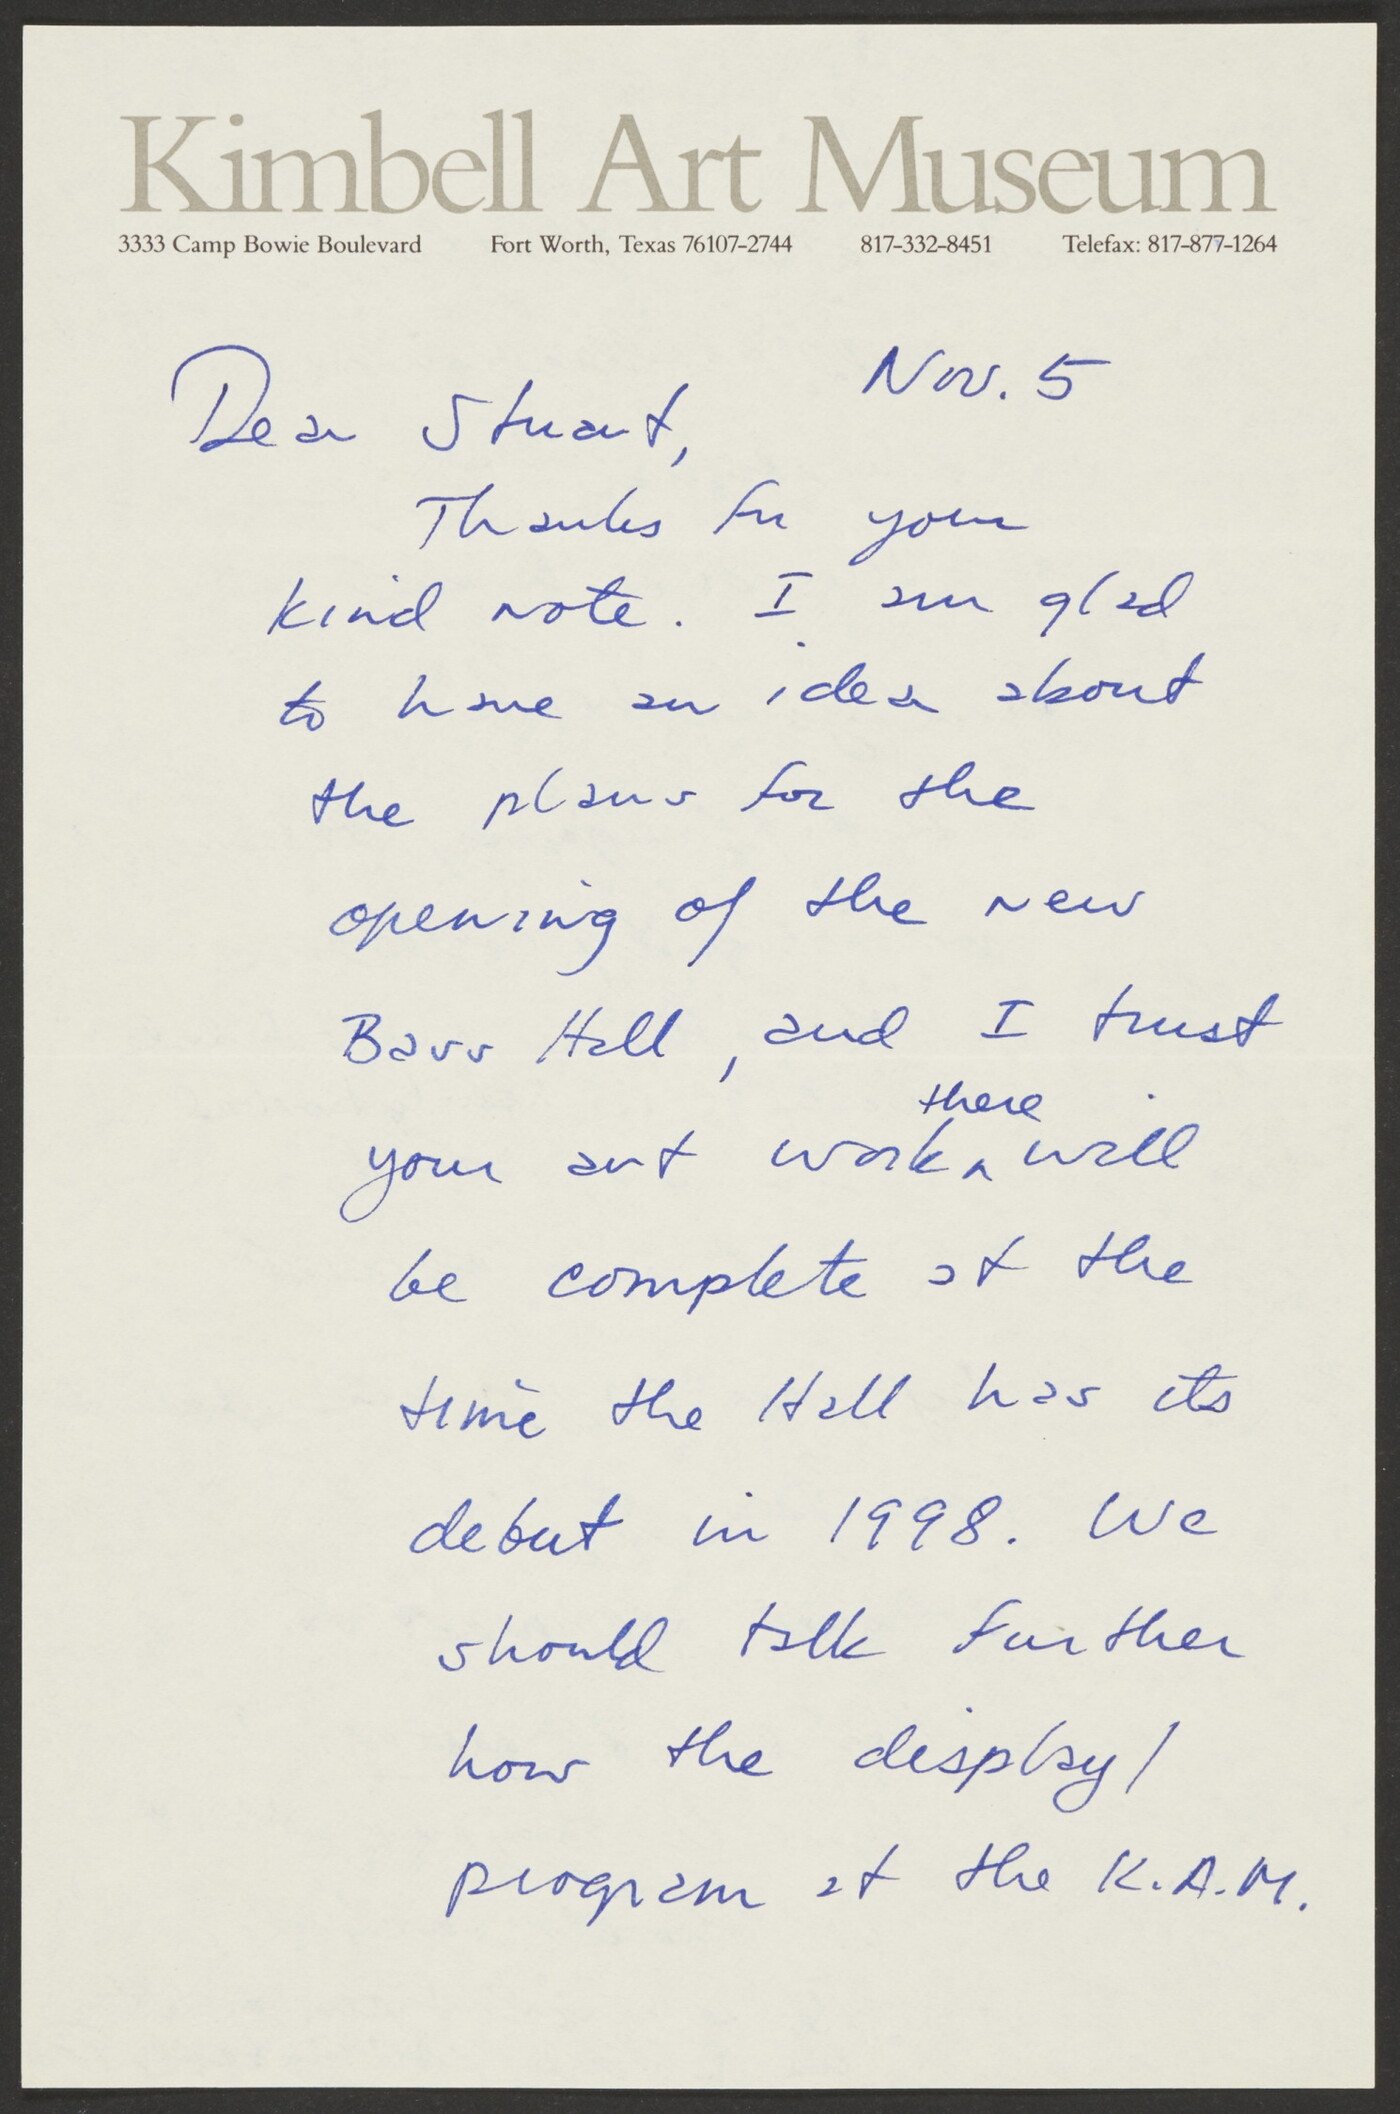 Kimbell Art Museum
3333 Camp Bowie Boulevard Fort Worth, Texas 76107-2744 817-332-8451 Telefax: 817-877-1264
Nov. 5
Dear Stuart,
Thanks for your
kind note. I am glad
to have an idea about
the plans for the
opening of the new
Bass Hall, and I trust
there
your art work ^ will
be complete at the
time the Hall has its
debut in 1998. We
should talk further
how the display/
program at the K.A.M.